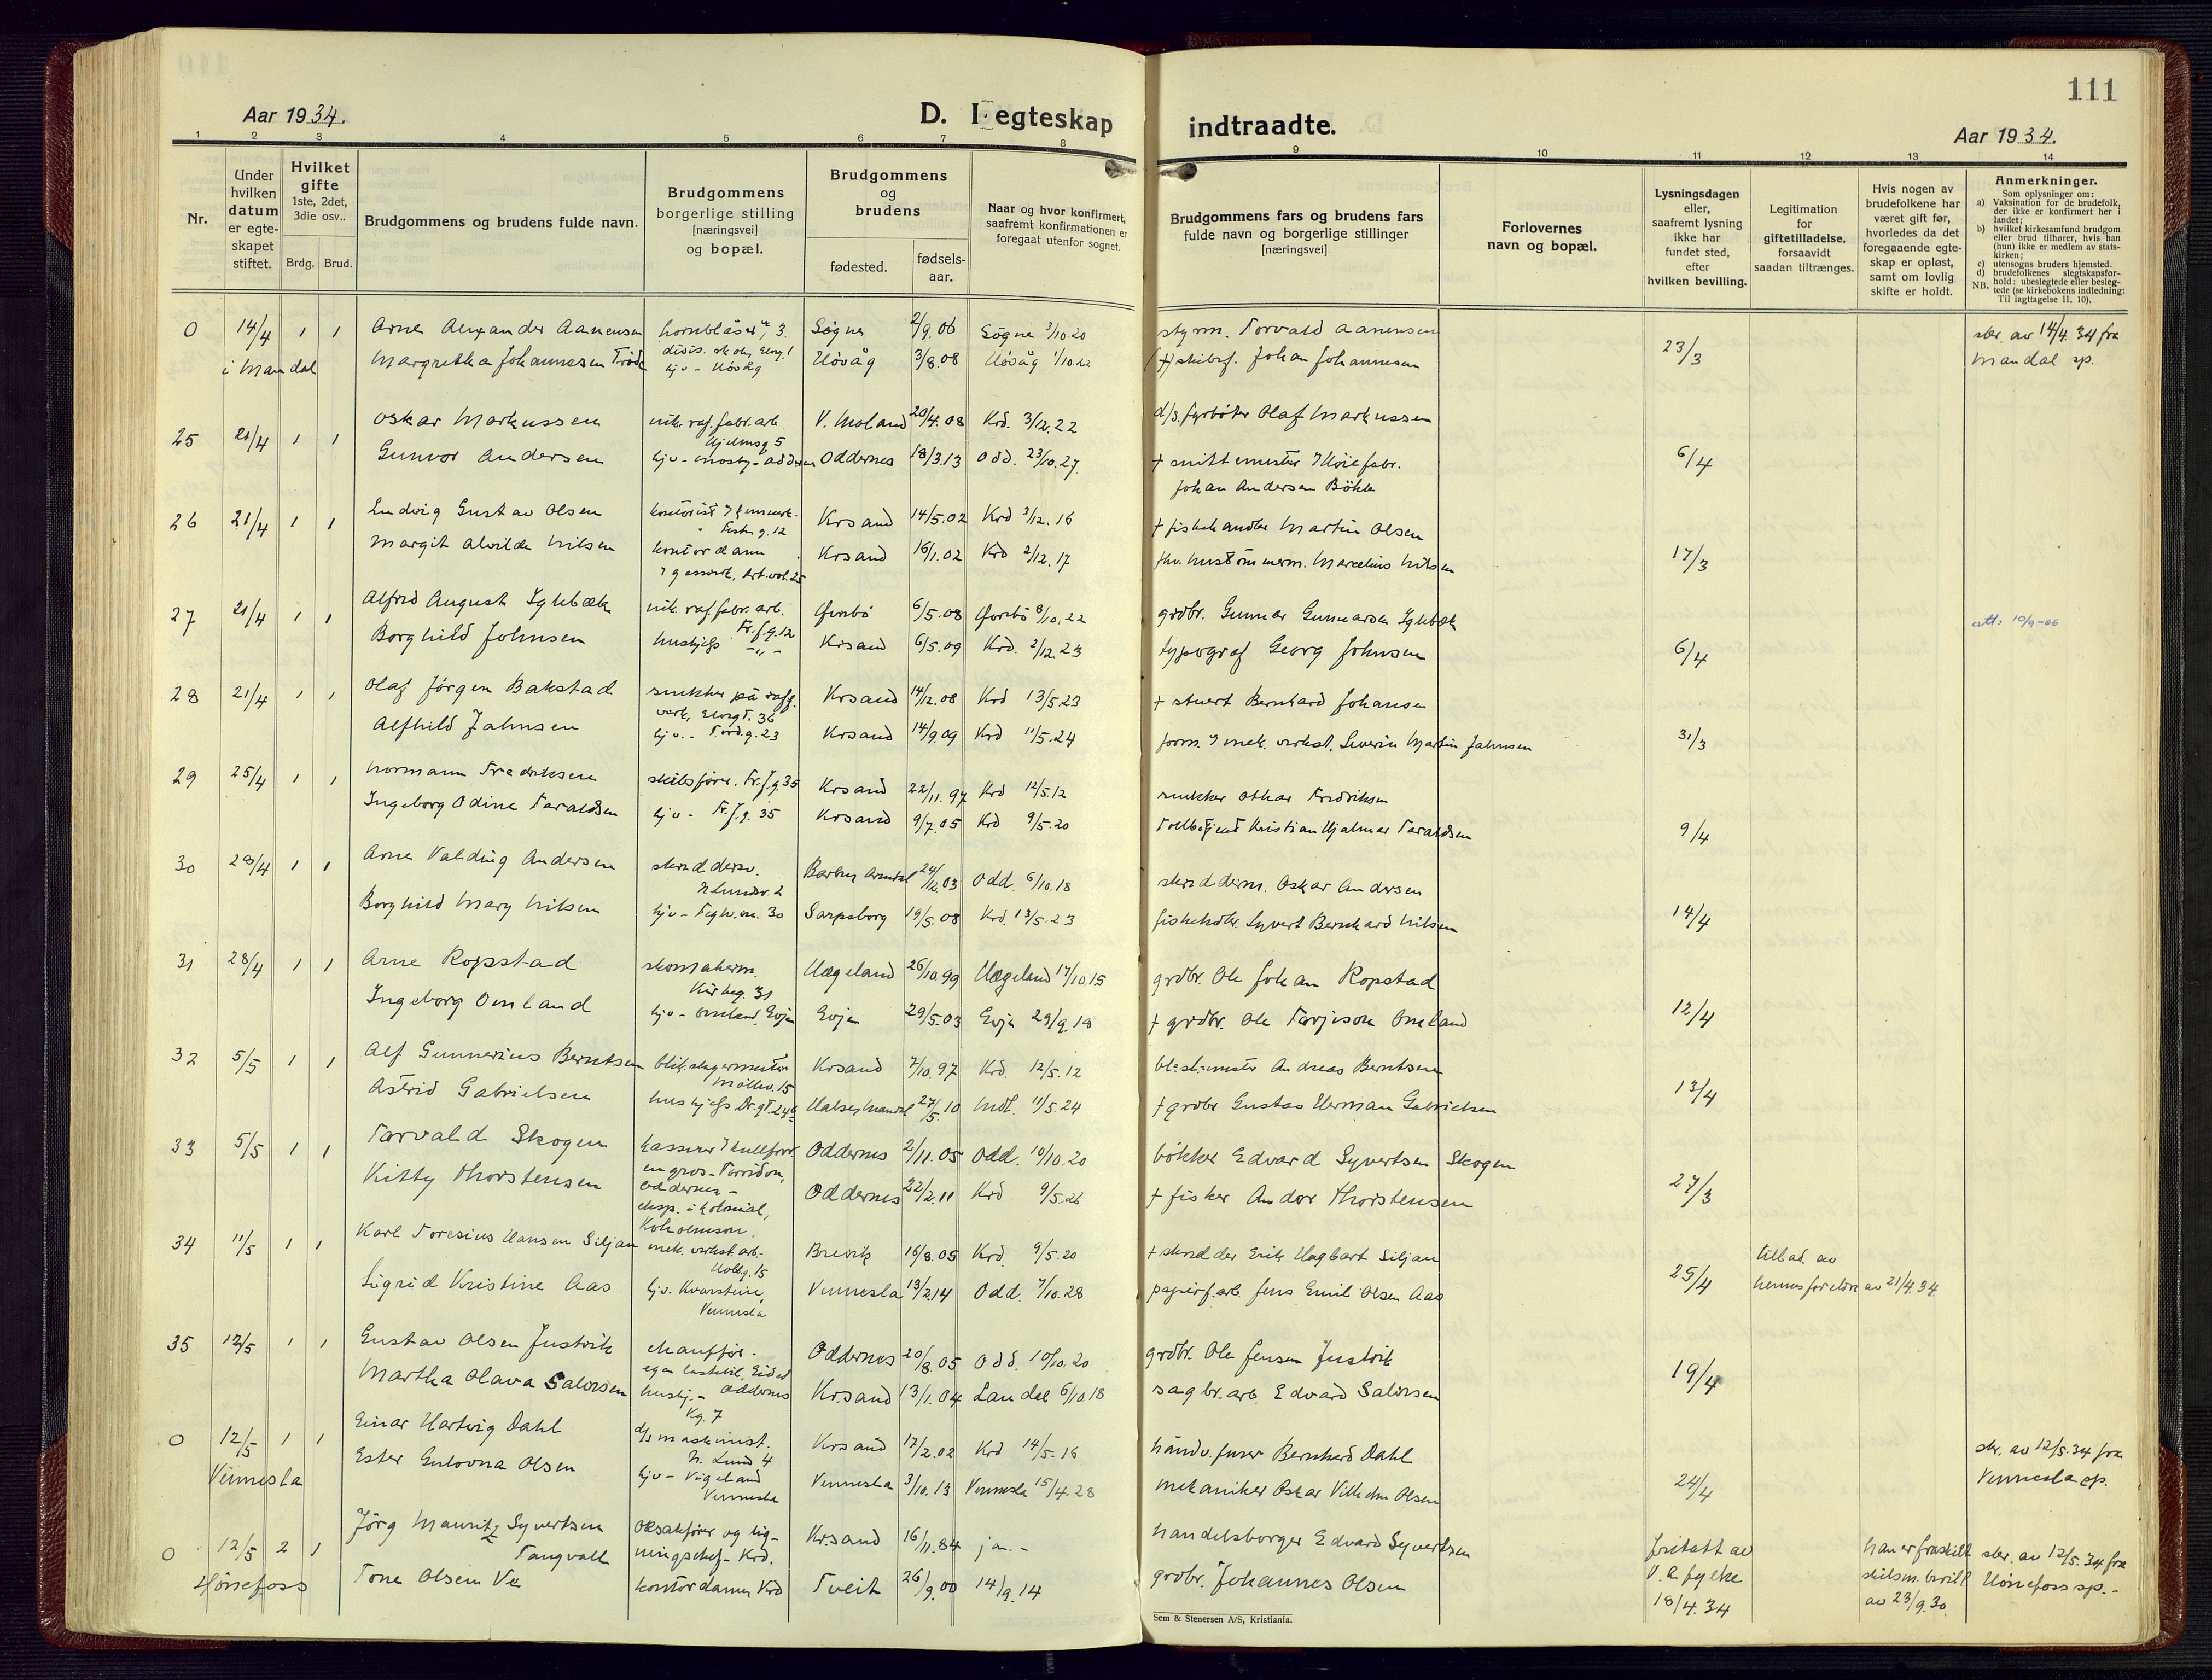 111
Aar 1934.
D. I egteskap indtraadte.
Aar 1934.
1 2 3 4 5 6 7 8 9 10 11 12 13 14
Nr.
Under hvilken datum er egte-skapet stiftet.
Hvilket gifte 1ste, 2det, 3die osv..
Brdg. Brud.
Brudgommens og brudens fulde navn.
Brudgommens borgerlige stilling [næringsvei] og bopæl.
Brudgommens og brudens
fødested. fødsels-aar.
Naar og hvor konfirmert, saafremt konfirmationen er foregaat utenfor sognet.
Brudgommens fars og brudens fars fulde navn og borgerlige stillinger [næringsvei]
Forlovernes navn og bopæl.
Lysningsdagen eller, saafremt lysning ikke har fundet sted, efter hvilken bevilling.
Legitimation for giftetilladelse, forsaavidt saadan tiltrænges.
Hvis nogen av brudefolkene har været gift før, hvorledes da det foregaaende egte-skap er opløst, samt om lovlig skifte er holdt.
Anmerkninger.
Som oplysninger om:
a) Vaksination for de brudefolk, der ikke er konfirmert her i landet;
b) hvilket kirkesamfund brudgom eller brud tilhører, hvis han (hun) ikke er medlem av stats-kirken;
c) utensogns bruders hjemsted.
d) brudefolkenes slegtskapsfor-hold: ubeslegtede eller besleg-tede (se kirkebokens indledning: Til Iagttagelse II, 10).
NB.
0 14/4 1 1 Arne Alexander Aanensen hornblåser v. 3. Søgne 2/9.06 Søgne 3/10.20 styrm. Torvald Aanensen 23/3 skr. av 14/4.34 fra
i Mandal Margretha Johannesen divis. Høvåg 3/8.08 Høvåg 1/10.22 (+) skibsf. Johan Johannesen Mandal sp.
hjv - Høvåg
25 21/4 1 1 Oskar Markussen nik. raf. fabr. arb. V. Moland 20/4.08 Krd. 3/12.22 d/s. fyrbøter Olaf Markussen 6/4
Hjelmsg 5
Gunvor Andersen hjv - Mosby - Oddernes Oddernes 18/3.13 Odd. 23/10.27. + snittemester Høie fabr.
Johan Andersen
26 21/4 1 1 Ludvig Gustav Olsen kontorist Krsand 14/5.02 Krd 3/12.16 + fiskehandler Martin Olsen 17/3
Margit Alvilde Nilsen kontordame Krsand 16/1.02 Krd 2/12.17 Marcelius Nilsen
27 21/4 1 1 Alfred August Iglebæk nik. raf. fabr. arb. Øvrebø 6/5.08 Øvrebø 8/10.22 grdbr. Gunnar Gunnarsen Iglebæk 6/4 att: 10/9-06
Fr.f.g.12
Borghild Johnsen hushjelp -"- Krsand 6/5.09 Krd. 2/12 23 typograf Georg Johnsen
28 21/4 1 1 Olaf Jørgen Bakstad snekker på raff. Krsand 14/12.08 Krd 13/5.23 + stuert Bernhard Johansen 31/3
verk, Elvegt. 36
Alfhild Jahnsen hjv. - Tord.g.23 Krsand 14/9.09 Krd 11/5.24 form. i mek. verkst. Severin Martin Jahnsen
29 25/4 1 1 Normann Fredriksen skibsfører. Fr.f.g.35 Krsand 22/11.97 Krd 12/5.12 snekker Othar Fredriksen 9/4
Ingeborg Odine Taraldsen hjv - Fr.f.g. 35 Krsand 9/7.05 Krd 9/5.20 Tollbetjent Kristian Hjalmar Taraldsen
30 28/4 1 1 Arne Valding Andersen skredders. Barbu Arendal 24/12.03 Odd. 6/10.18 skredderm. Oskar Andersen 14/4
N Lundsv. 2
Borghild Mary Nilsen hjv - Teglv.vn. 30 Sarpsborg 19/5.08 Krd. 13/5.23 fiskehdlr. Syvert Bernhard Nilsen
31 28/4 1 1 Arne Ropstad skomakerm. Hægeland 26/10.99 Hægeland 17/10.15 grdbr. Ole Johan Ropstad 12/4
Kirkeg. 31
Ingeborg Omland hjv - Omland, Evje Evje 29/5.03 Evje 29/9.18 + grdbr. Ole Tarjeson Omland
32 5/5 1 1 Alf Gunnerius Berntsen blik.slagermester Krsand 7/10.97 Krd. 12/5.12 Andreas Berntsen 13/4
Møllev. 15
Astrid Gabrielsen hushjelp Dr.gt. 24 Halse, Mandal 27/5 10 Mdl. 11/5.24 + grdbr Gustav Herman Gabrielsen
33 5/5 1 1 Tarvald Skogen kasserer i kullforr. Oddernes 2/11.05 Odd. 10/10.20 bøkker Edvard Syvertsen Skogen 27/3
en gros - Torridon,
Oddernes -
Kitty Thorstensen eksp. i kolonial, Oddernes 22/2.11 Krd 9/5.26 + fisker Andor Thorstensen
Kvholmson.
34 11/5 1 1 Karl Toresius Hansen Siljan mek. verkst. arb. - Brevik 16/8.05 Krd. 9/5.20 + skredder Erik Hagbart Siljan 25/4 tillad. av
Holbg. 15 hennes foreldre av 21/4.34.
Sigrid Kristine Aas hjv. Kvarstein, Vennesla 13/2.14 Odd. 7/10.28 papirf. arb. Jens Emil Olsen Aas
Vennesla
35 12/5 1 1 Gustav Olsen Justvik chauffør. Oddernes 20/8.05 Odd. 10/10.20 grdbr. Ole Jensen Justvik 19/4
egen lastebil, Eidet
Martha Olava Salvesen hushj. - Oddernes Krsand 13/1.04 Landal 6/10.18 sagbr. arb. Edvard Salvesen
Kg. 7
0 12/5 1 1 Einar Hartvig Dahl d/s maskinist. Krsand 17/2.02 Krd 14/5.16 Bernhard Dahl 24/4 skr. av 12/5.34 fra
N. Lund 4
Vennesla Ester Olsen hjv - Vigeland Vennesla 3/10.13 Vennesla 15/4.28 mekaniker Oskar Vilhelm Olsen Vennesla sp.
Vennesla
0 12/5 2 1 Jørg Mauritz Syvertsen o.r.sakfører og lig- Krsand 16/11.84 ja. - handelsborger Edvard Syvertsen fritatt av han er fraskilt skr. av 12/5.34 fra
Tangvall ningschef - Krd. V. A fylke skilsm. bevill. Hønefoss sp. -
Hønefoss Tone Olsen Ve kontordame Krd Tveit 26/9.00 14/9.14 grdbr. Johannes Olsen 18/4.34 av 23/9.30.
Sem & Stenersen A/S, Kristiania.